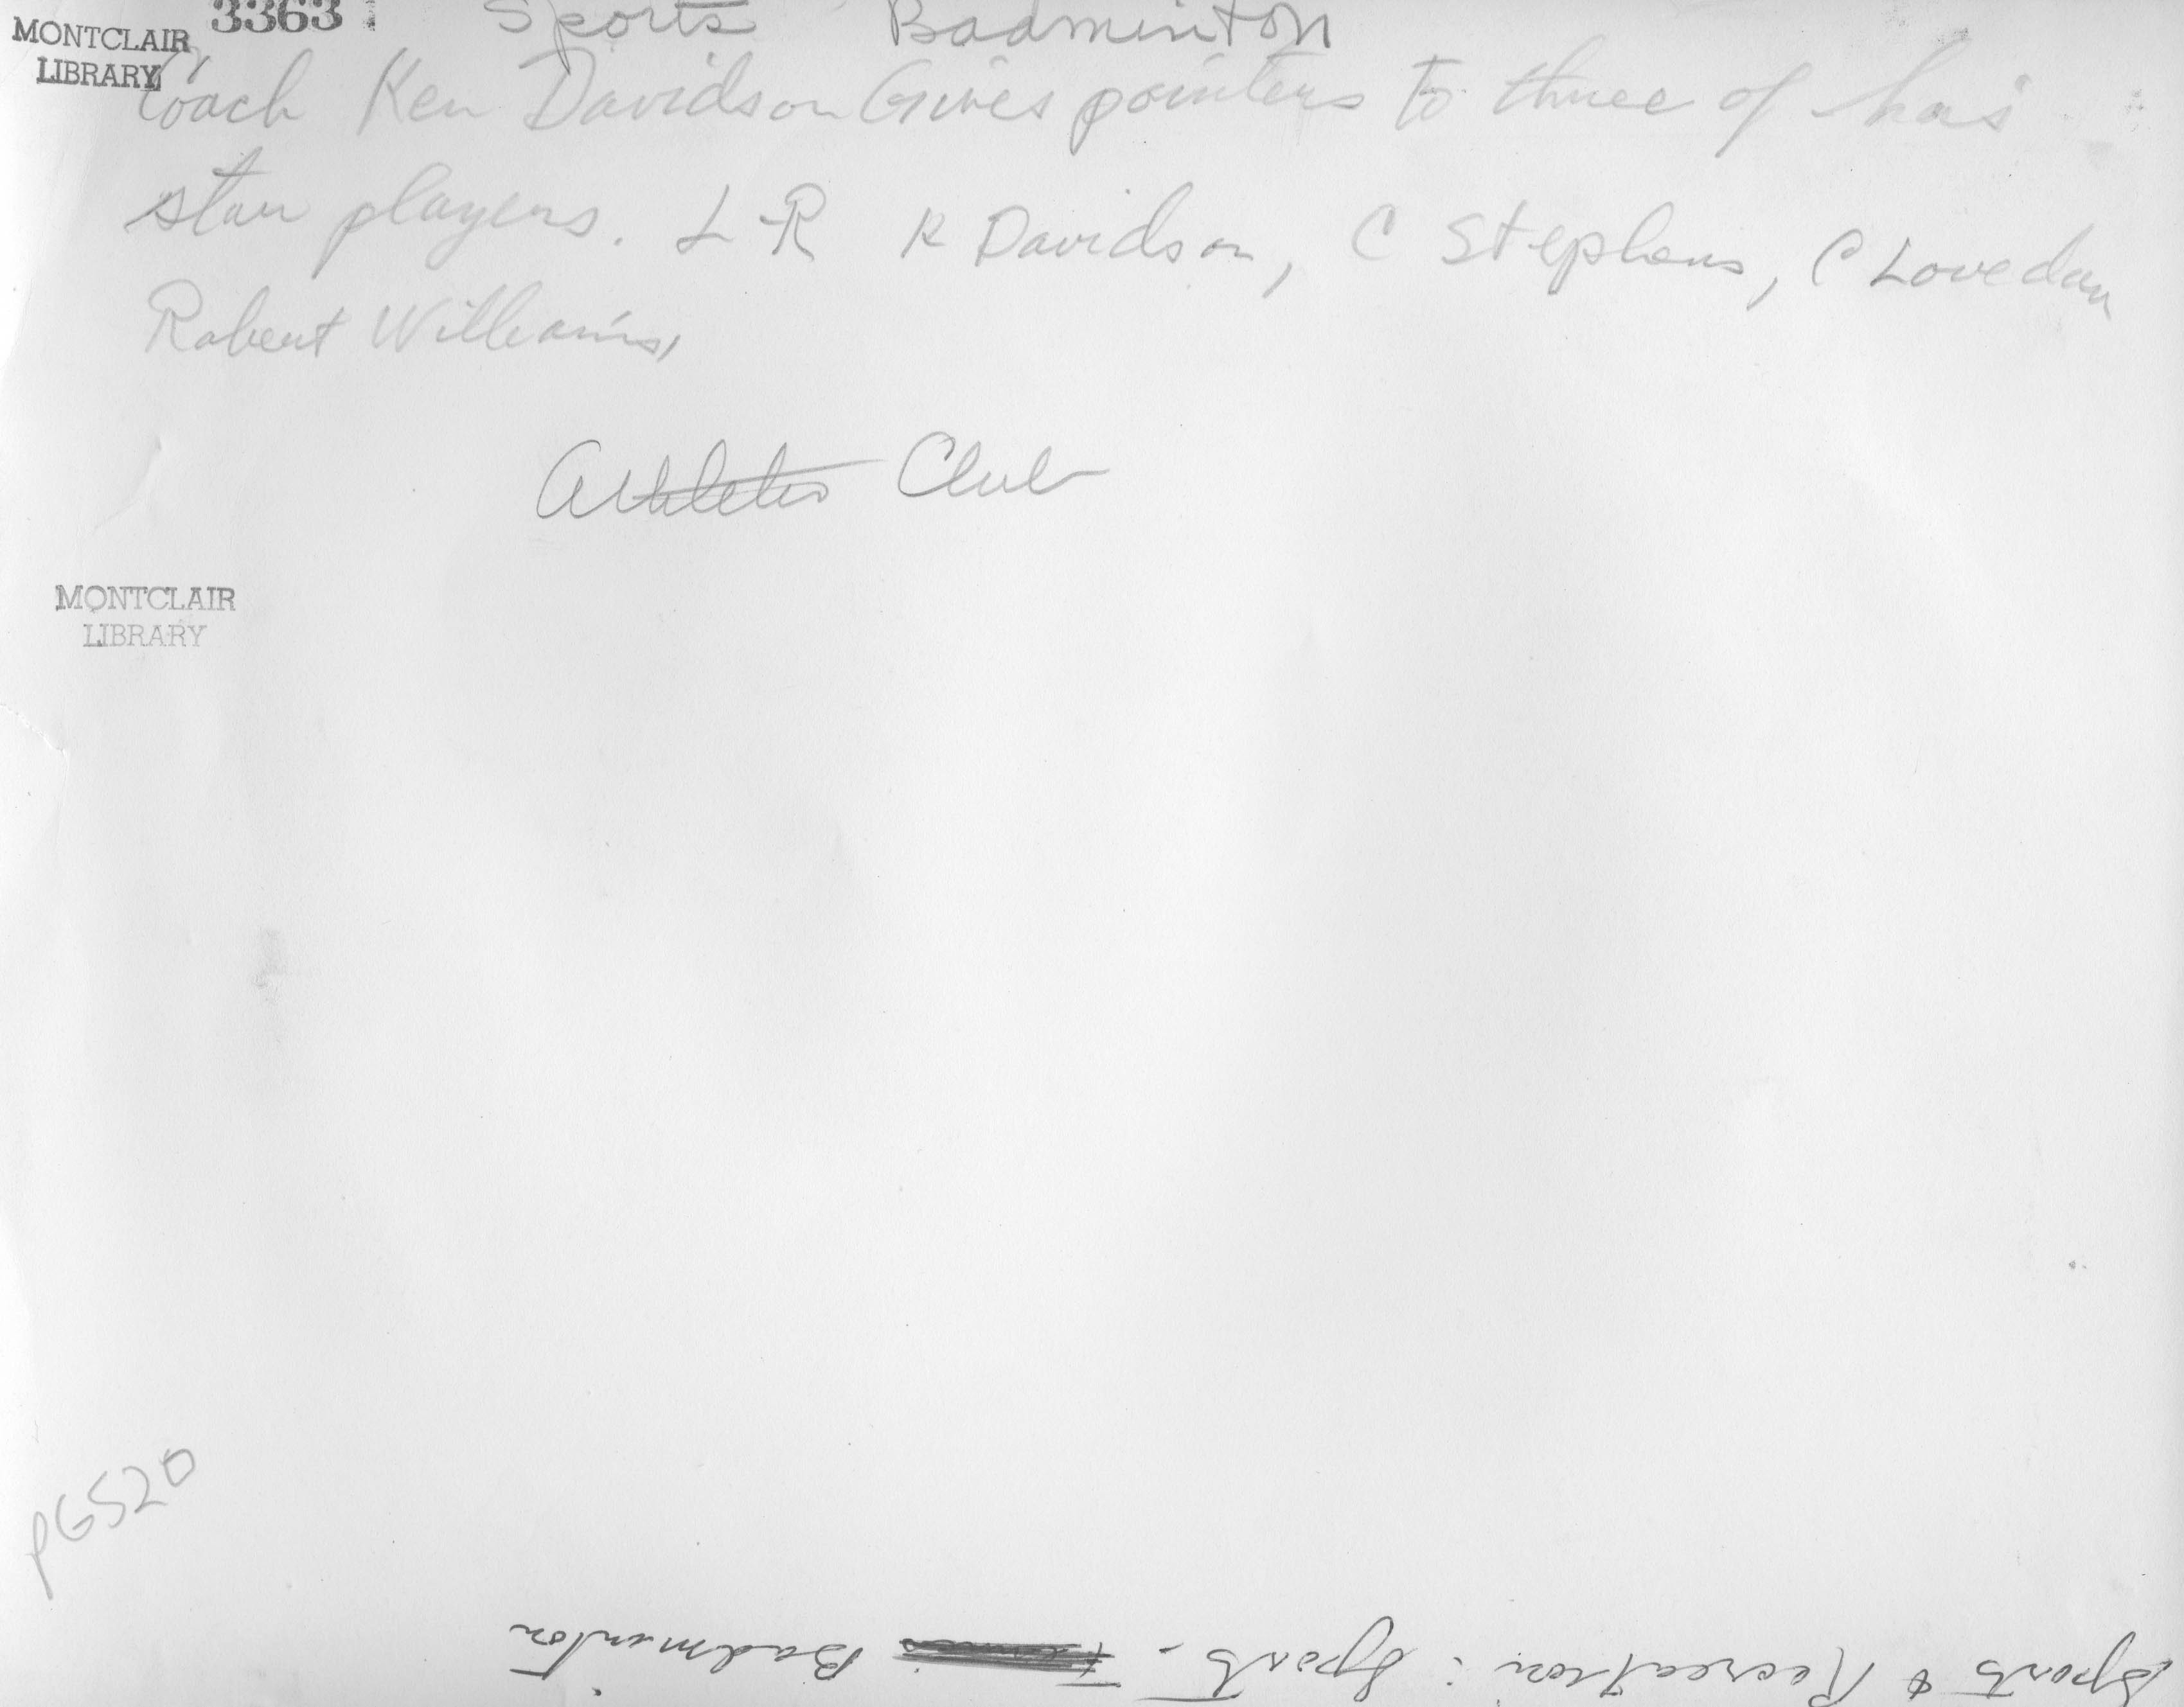 3363
Sports Badminton
MONTCLAIR
LIBRARY
Coach Ken Davidson Gives pointers to three of his
star players. L-R K Davidson, C Stephens, C Lovedan
Robert Williams,
Athletic Club
MONTCLAIR
LIBRARY
PG520
Sports & Recreation: Sports - Badminton